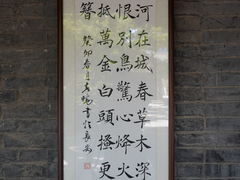 河在城春草木深
恨別鳥驚心烽火
抵萬金白頭搔更
簪
癸卯春月書於長安